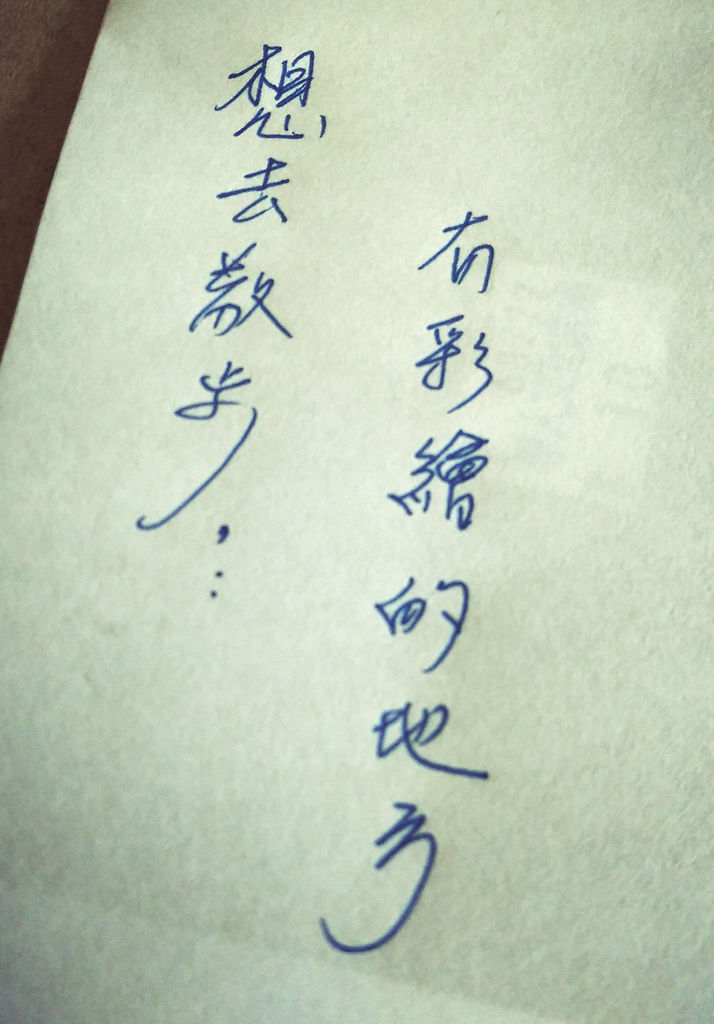 有彩繪的地方
想去散步…